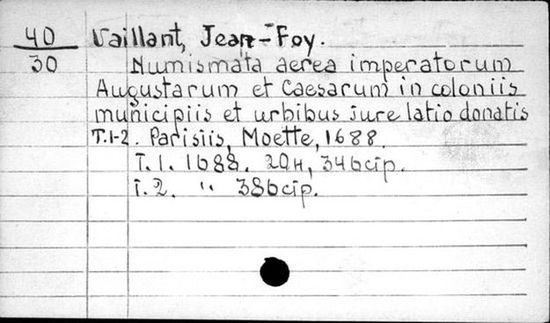 40 Vaillant, Jean-Foy.
30 Numismata aerea imperatorum
Augustarum et Caesarum in coloniis
municipiis et urbibus iure latio donatis
T.1-2. Parisiis, Moette, 1688.
T.1. 1688. 20н, 346стр.
T.2. " 386стр.